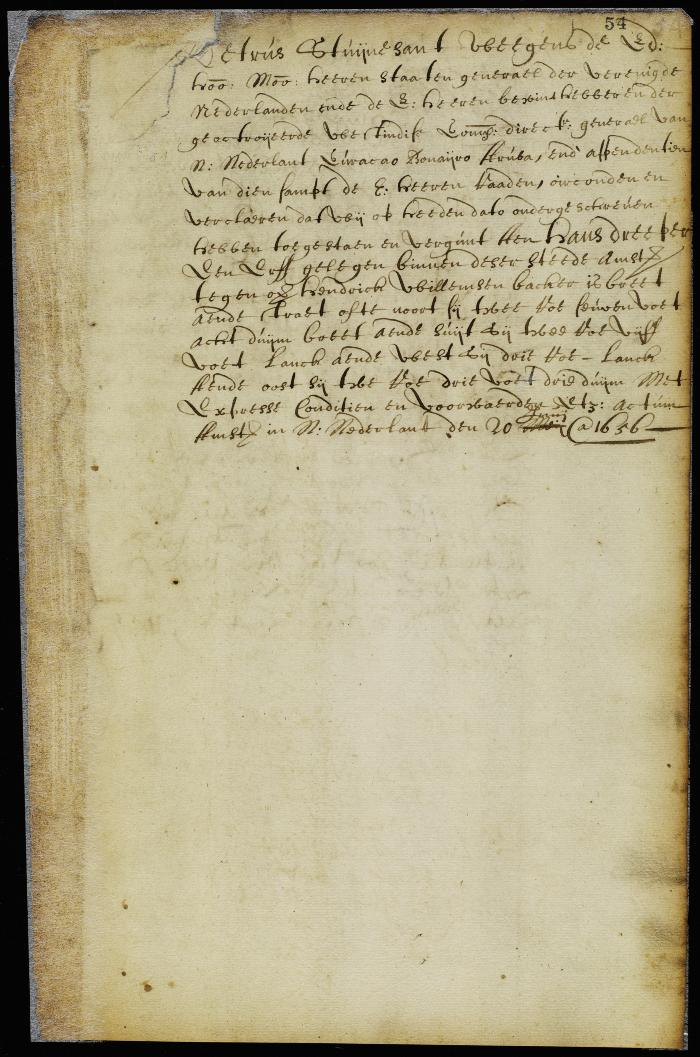 54
Petrus Stuijvesant weegens de Ed:
hoo: Moo: heeren staaten generael der verenigde
Nederlanden ende de E: heeren bewinthebberen der
geoctroijeerde West Indise Comp: direct: generael van
N: Nederlant Curacao Bonaijro Aruba, end appendentien
van dien sampt de E: heeren Raaden, oirconden en
verclaeren dat wij op heeden dato ondergeschreven
hebben toegestaen en vergunt Aen Hans dreeper
Een Erff gelegen binnen deser steede Amst
tegen Hendrick Willemsen backer is breet
aende straet ofte noort sij twee Roe seuven voet
acht duijm breet aende suijt sij twee Roe vijff
voet Lanck aende West sij drie Roe - Lanck
Aende oost sij twe Roe drie voet drie duijm Met
Expresse Conditien en voorwaerden Etz: Actum
Amst in N: Nederlant den 20 Junij @ 1656